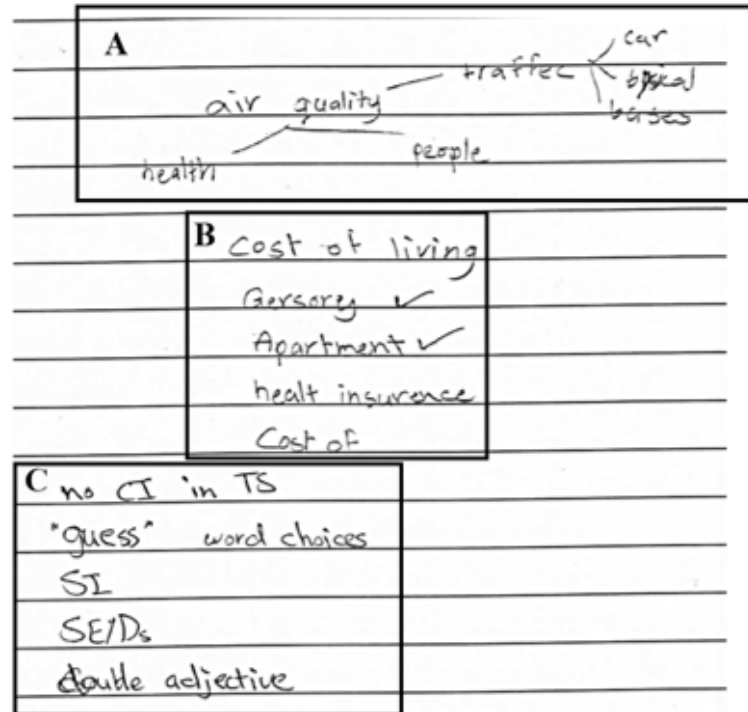 A
car
traffec
air quality
buses
health
people
B
Cost of living
Gersorey ✓
Apartment ✓
healt insurence
Cost of
C
no CI in TS
"guess" word choices
SI
SE/Ds
double adjective